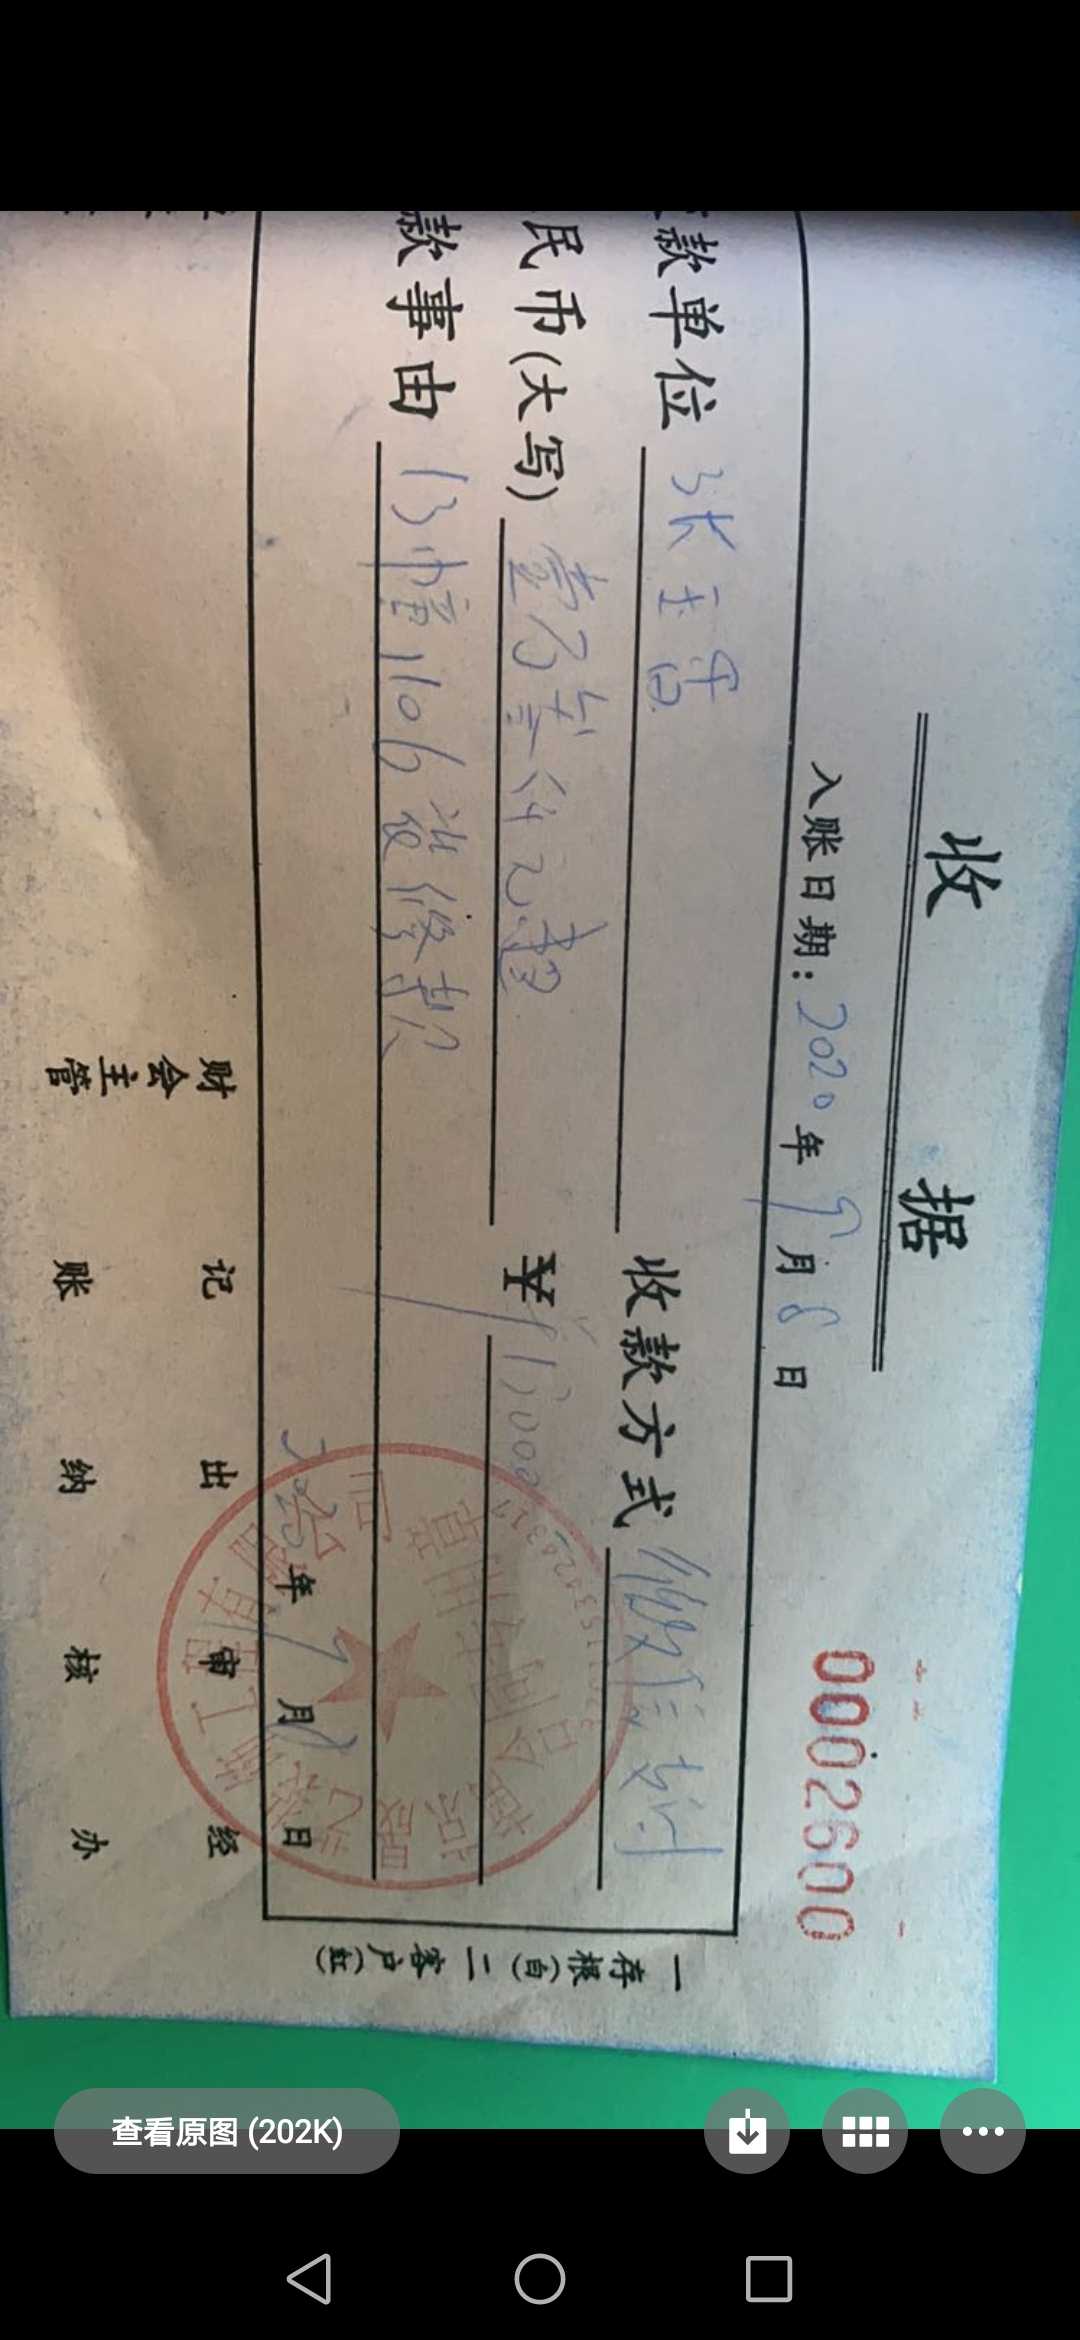 收 据
0002600
入账日期: 2020 年 9 月 8 日
款单位 张玉雷 收款方式 微信支付
民币(大写) 壹万壹仟元整 ¥ 11000
款事由 13幢1106装修款
2020 年 9 月 8 日
合同专用章
一存根(白) 二客户(红)
财会主管 记账 出纳 审核 经办
查看原图 (202K)